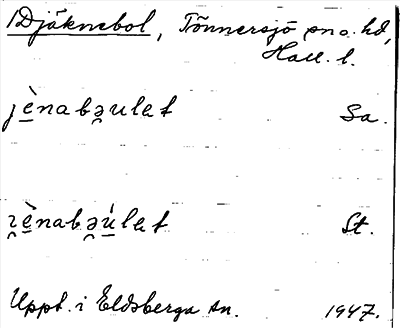 Djäknebol, Tönnersjö sn o. hd,
Hall. l.
jè̱nabə̯ulet Sa.
ɿ̯è̱nabə̯ú̱let St.
Uppt. i Eldsberga sn. 1947.